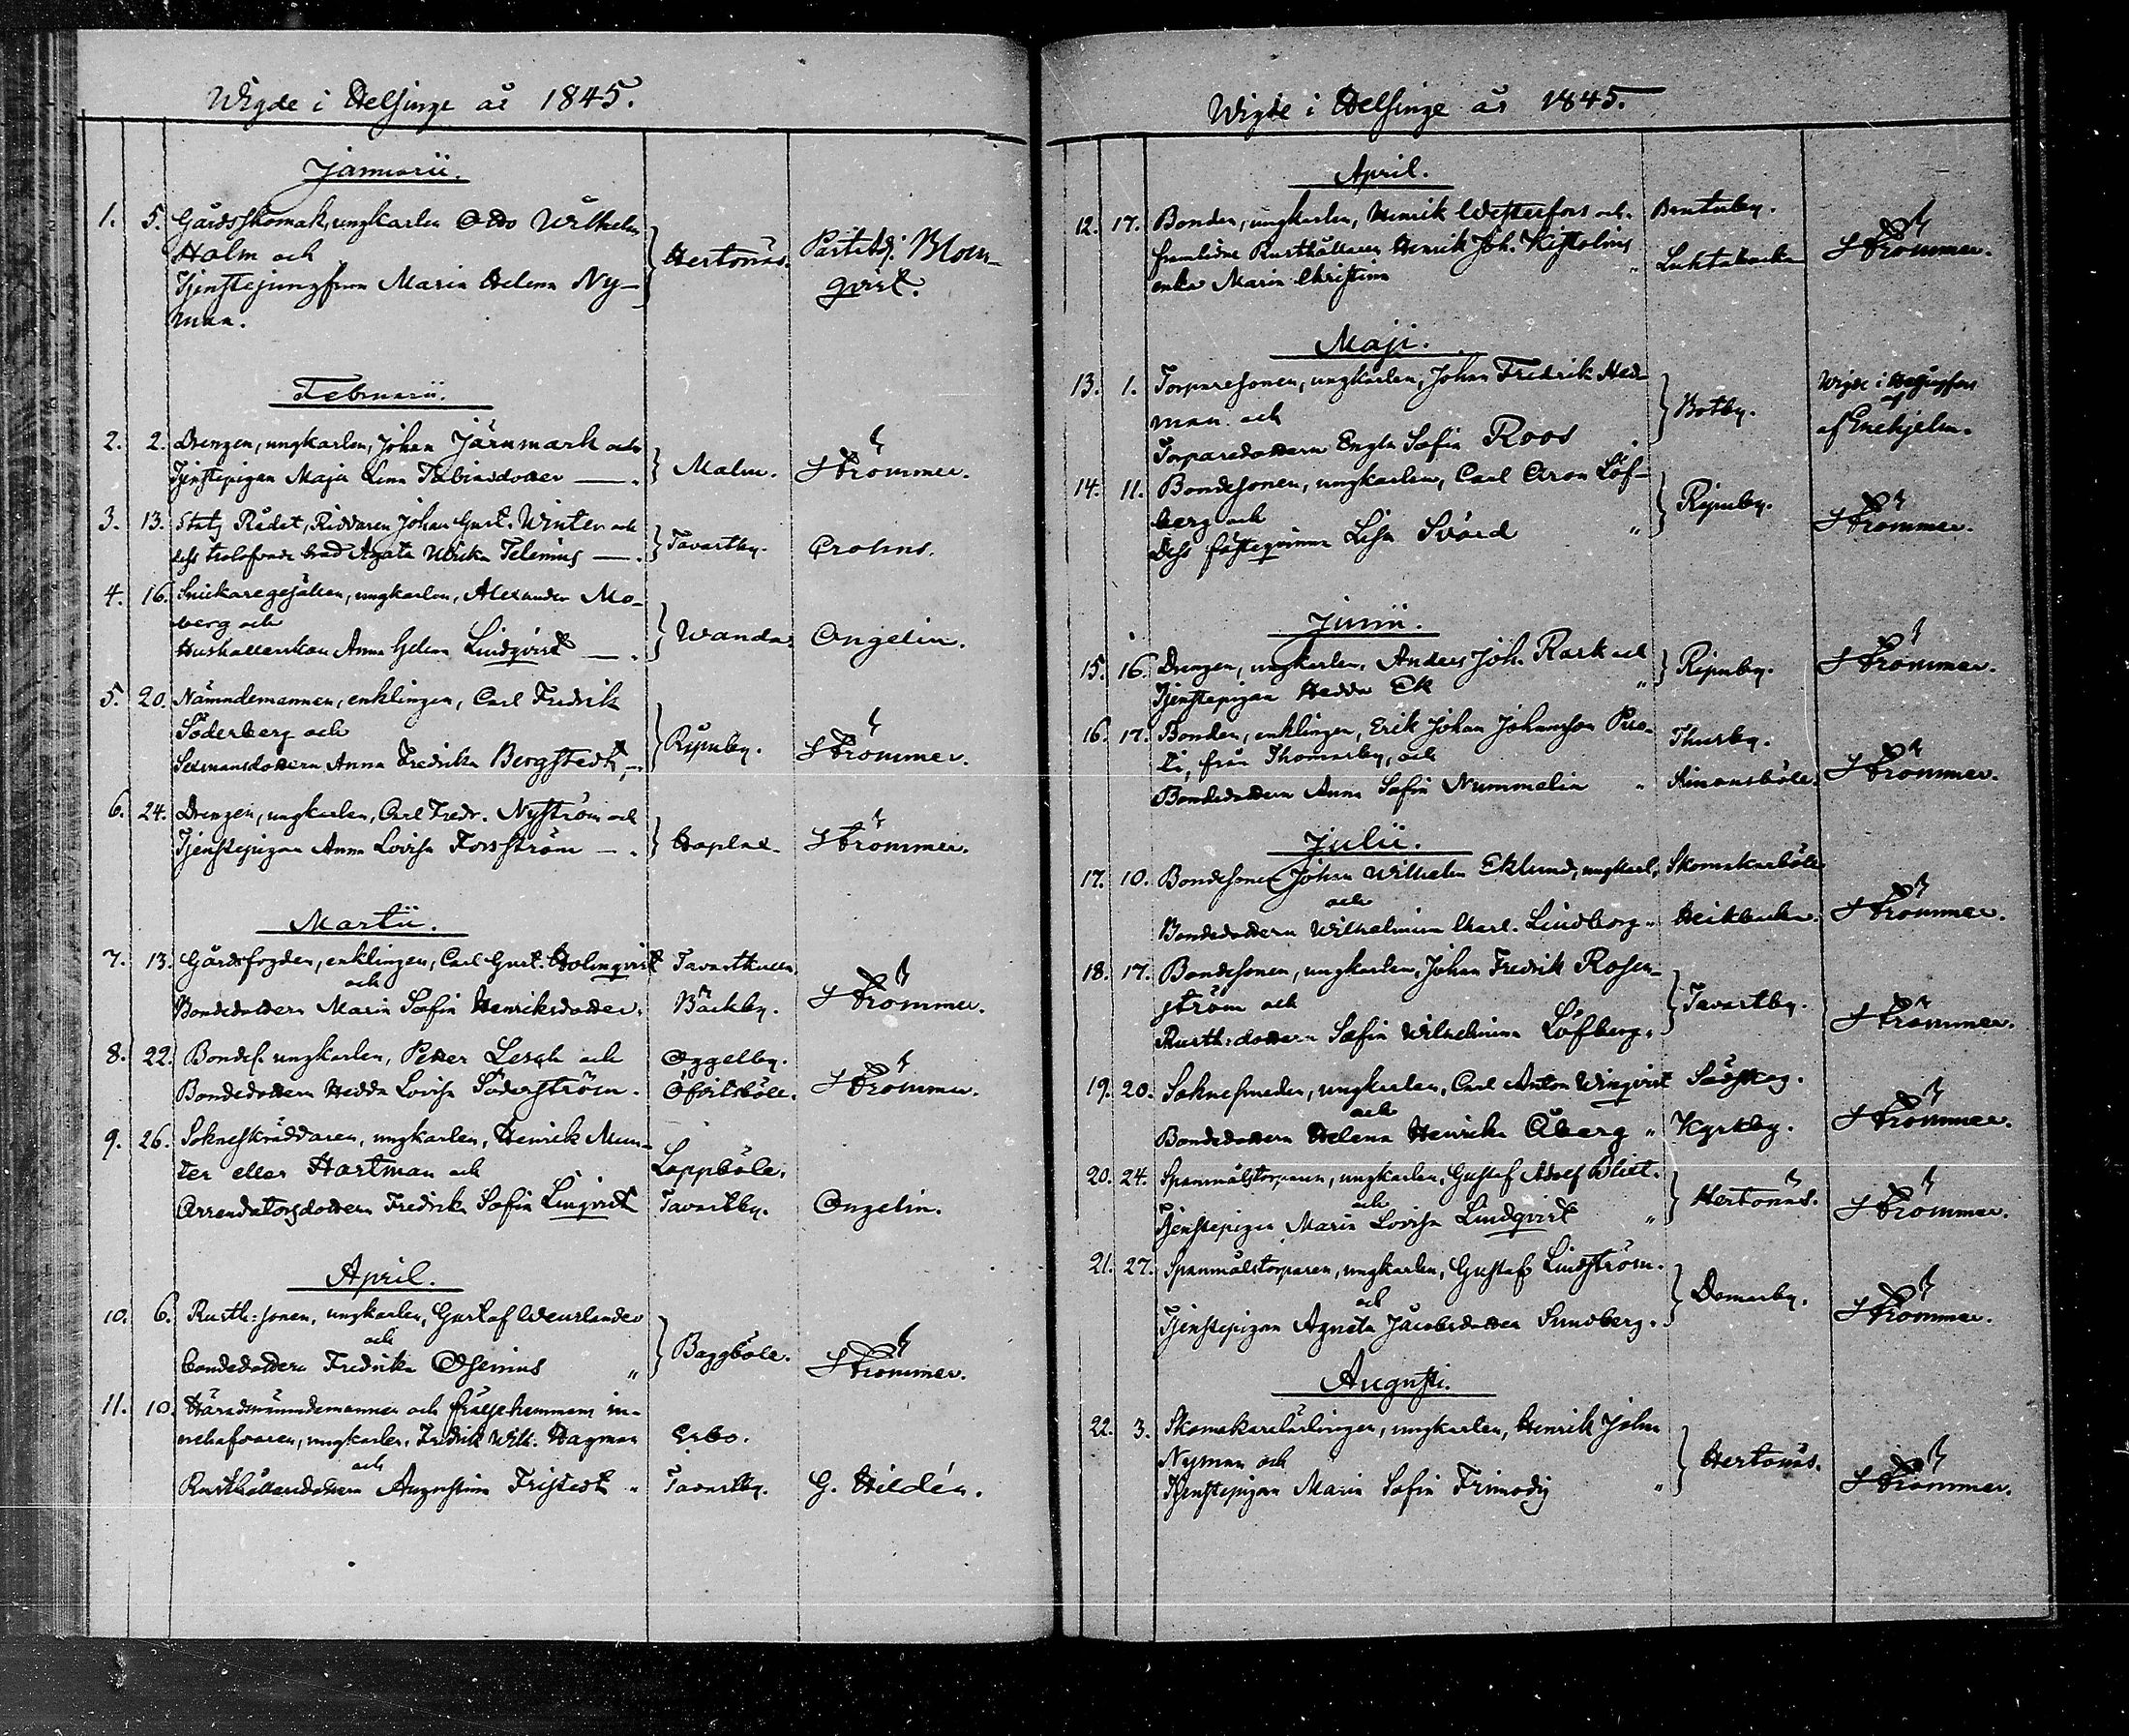 Wigde i Helsinge år 1845.
Januarii.
1. 5. Gårdsskomak, ungkarlen Otto Wilhelm
Holm och
Tjenstejungfrun Maria Helena Ny-
man. Hertonäs. Blom-
qvist.
Februarii.
2. 2. Drengen, ungkarlen, Johan Järnmark och
Tjenstepigan Maja Lena Tobiasdotter — . Malm. Strömmer.
3. 13. Stats Rådet, Riddaren Johan Gust. Winter och
dess trolofvade brud Agata Ulrika Telenius — . Tavastby. Crohns.
4. 16. Snickaregesällen, ungkarlen, Alexander Mo-
berg och
Hushållerskan Anna Helena Lindqvist — . Wanda. Ongelin.
5. 20. Nämndemannen, enklingen, Carl Fredrik
Söderberg och
Sexmansdottern Anna Fredrika Bergstedt, — Ripuby. Strömmer.
6. 24. Drengen, ungkarlen, Carl Fredr. Nyström och
Tjenstepigan Anna Lovisa Forsström — . Hoplax. Strömmer.
Martii.
7. 13. Gårdsfogden, enklingen, Carl Gust. Holmqvist Tavastkulla
och
Bondedottern Maria Sofia Henriksdotter. Backby. Strömmer.
8. 22. Bondes. ungkarlen, Petter Lesch och Oggelby.
Bondedottern Hedda Lovisa Söderström. Öfvitsböle. Strömmer.
9. 26. Sokneskräddaren, ungkarlen, Henrik Mun-
ter eller Hartman och Lappböle,
Arrendatorsdottern Fredrika Sofia Linqvist Tavastby. Ongelin.
April.
10. 6. Rusth: sonen, ungkarlen, Gustaf Weurlander
och
bondedottern Fredrika Osenius " Baggböle. Strömmer.
11. 10. Häradsnämndemannen och frälsehemmans in-
nehafvaren, ungkarlen, Fredrik Wilh. Hagman Erbo.
och
Rusthållaredottern Augustina Fristedt " Tavastby. G. Hildén.
Wigde i Helsinge år 1845.
April.
12. 17. Bonden, ungkarlen, Henrik Westerfors och
framlidne Rusthållaren Henrik Joh.
enka Maria Christina " Strömmer.
Maji.
13. 1. Torparesonen, ungkarlen, Johan Fredrik Hed-
man och
Torparedottern Engla Sofia Roos Botby. Wigde i Helsingfors
af Enehjelm.
14. 11. Bondesonen, ungkarlen, Carl Aron Löf-
berg och
Dess fästeqvinna Lisa Svärd " Ripuby. Strömmer.
Junii.
15. 16. Drengen, ungkarlen, Anders Joh. Rask och
Tjenstepigan Hedda Ek " Ripuby. Strömmer.
16. 17. Bonden, enklingen, Erik Johan Johansson
från Thomasby, och Thusby.
Bondedottern Anna Sofia Nummelin " Simonsböle. Strömmer.
Julii.
17. 10. Bondesonen Johan Wilhelm Eklund, ungkarl, Skomakarböle
och
Bondedottern Wilhelmina Charl. Lindberg " Heikbacka. Strömmer.
18. 17. Bondesonen, ungkarlen, Johan Fredrik Rosen-
ström och
Rusth: dottern Sofia Wilhelmina Löfberg " Tavastby. Strömmer.
19. 20. Soknesmeden, ungkarlen, Carl Anton Winqvist
och
Bondedottern Helena Henrika Åberg " Kyrkby. Strömmer.
20. 24. Spanmålstorparen, ungkarlen, Gustaf Adolf Blixt.
och
Tjenstepigan Maria Lovisa Lindqvist " Hertonäs. Strömmer.
21. 27. Spanmålstorparen, ungkarlen, Gustaf Lindström.
och
Tjenstepigan Agneta Jacobsdotter Sundberg. Domarby. Strömmer.
Augusti.
22. 3. Skomakarelärlingen, ungkarlen, Henrik Johan
Nyman och
Tjenstepigan Maria Sofia Frimodig " Hertonäs. Strömmer.